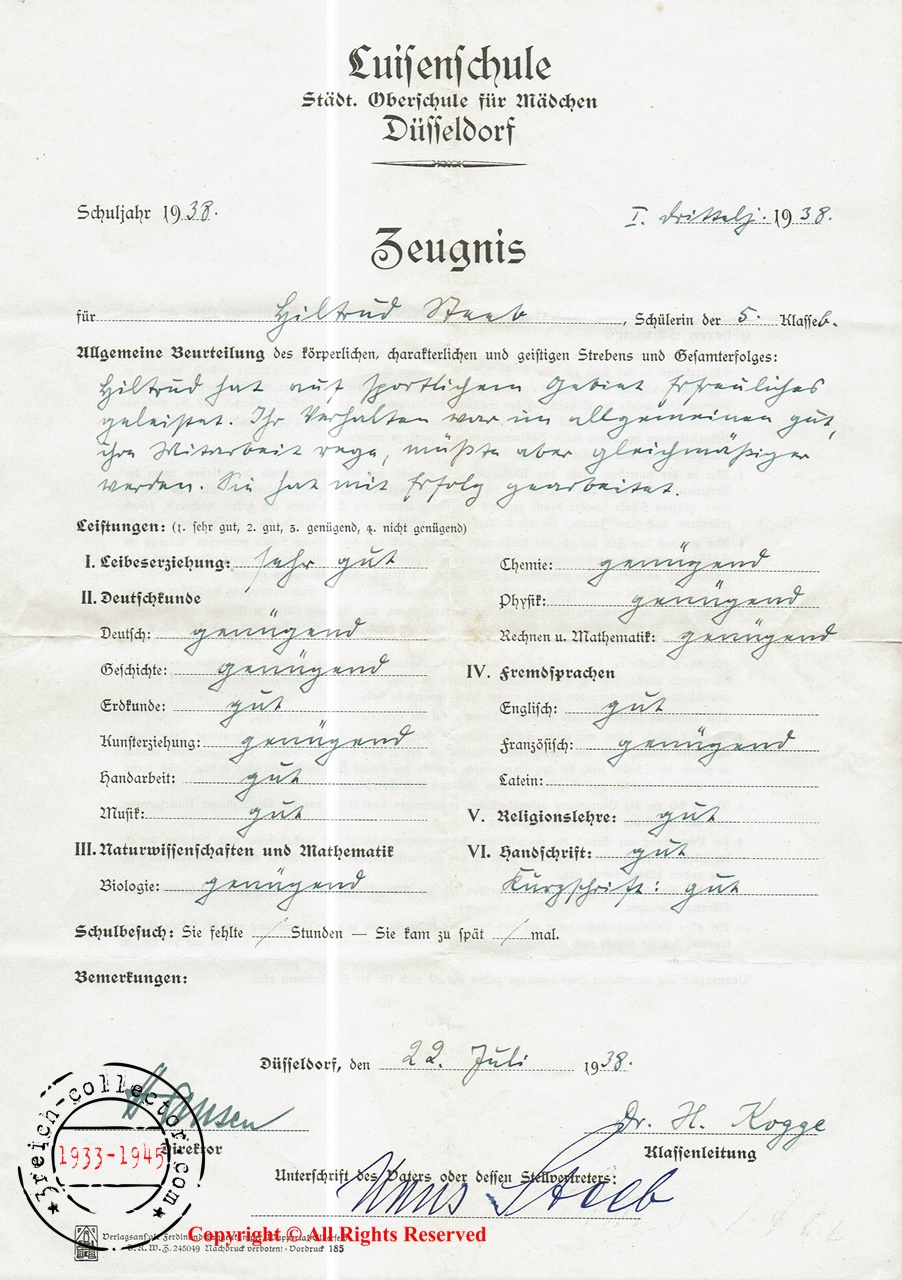 Luisenschule
Städt. Oberschule für Mädchen
Düsseldorf
Schuljahr 1938. I. Drittelj. 1938.
Zeugnis
für Hiltrud Staeb, Schülerin der 5. Klasse b.
Allgemeine Beurteilung des körperlichen, charakterlichen und geistigen Strebens und Gesamterfolges:
Hiltrud hat auf sportlichem Gebiet Erfreuliches
geleistet. Ihr Verhalten war im allgemeinen gut,
ihre Mitarbeit rege, müßte aber gleichmäßiger
werden. Sie hat mit Erfolg gearbeitet.
Leistungen: (1. sehr gut, 2. gut, 3. genügend, 4. nicht genügend)
I. Leibeserziehung: sehr gut
II. Deutschkunde
Deutsch: genügend
Geschichte: genügend
Erdkunde: gut
Kunsterziehung: genügend
Handarbeit: gut
Musik: gut
III. Naturwissenschaften und Mathematik
Biologie: genügend
Chemie: genügend
Physik: genügend
Rechnen u. Mathematik: genügend
IV. Fremdsprachen
Englisch: gut
Französisch: genügend
Latein:
V. Religionslehre: gut
VI. Handschrift: gut
Kurzschrift: gut
Schulbesuch: Sie fehlte / Stunden — Sie kam zu spät / mal.
Bemerkungen:
Düsseldorf, den 22. Juli 1938.
Dr. H. Kogge
Direktor Klassenleitung
Unterschrift des Vaters oder dessen Stellvertreters:
Hans Staeb
3reich-collector.com
1933-1945
Copyright © All Rights Reserved
Verlagsanstalt
245049 Nachdruck verboten! · Vordruck 185